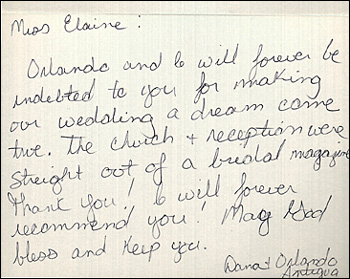 Miss Elaine:
Orlando and I will forever be
indebted to you for making
our wedding a dream come
true. The church + reception were
straight out of a bridal magazine
Thank you! I will forever
recommend you! May God
bless and keep you.
Dana + Orlando
Antigua